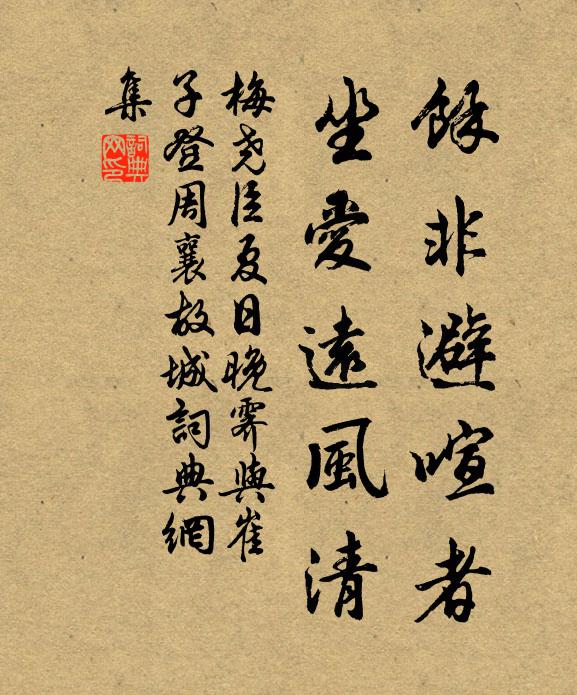 餘非避喧者
坐愛遠風清
梅堯臣夏日晚霽與崔
子登周襄故城詞典網
集
詞典
网印